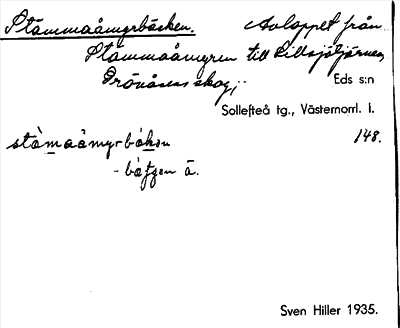 Stämmaåmyrbäcken. Avloppet från
Stämmaåmyren till Lillsjötjärnen,
Prövåsens skog,
Eds s:n
Sollefteå tg., Västernorrl. l.
148.
Sven Hiller 1935.